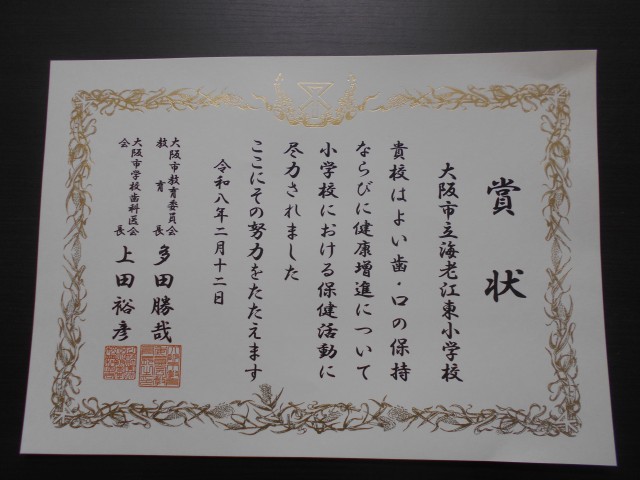 賞状
大阪市立海老江東小学校
貴校はよい歯・口の保持
ならびに健康増進について
小学校における保健活動に
尽力されました
ここにその努力をたたえます
令和八年二月十二日
大阪市教育委員会
教育長 多田勝哉
大阪市学校歯科医会
会長 上田裕彦